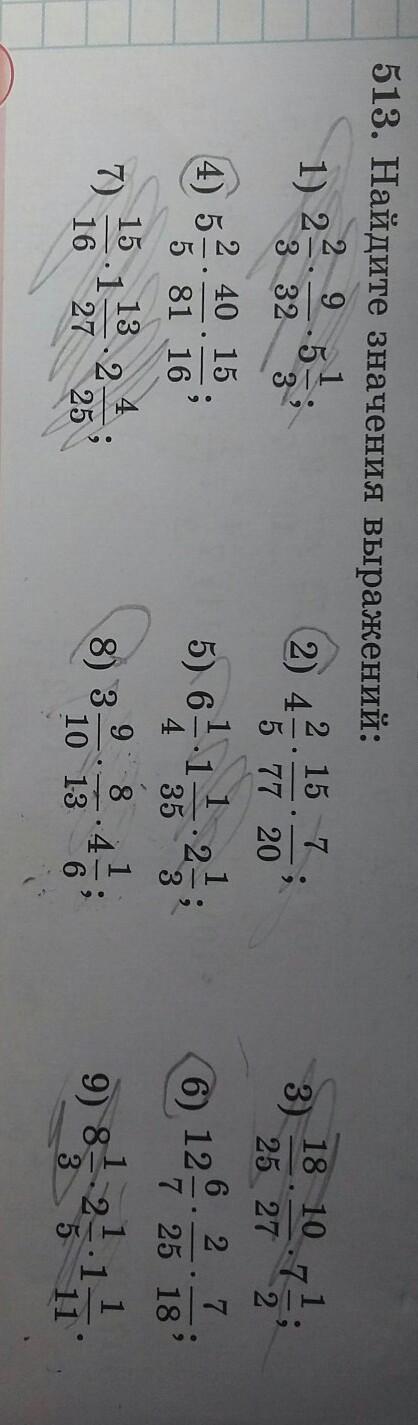 513. Найдите значения выражений:
1) 2 2/3 · 9/32 · 5 1/3; 2) 4 2/5 · 15/77 · 7/20; 3) 18/25 · 10/27 · 7 1/2;
4) 5 2/5 · 40/81 · 15/16; 5) 6 1/4 · 1 1/35 · 2 1/3; 6) 12 6/7 · 2/25 · 7/18;
7) 15/16 · 1 13/27 · 2 4/25; 8) 3 9/10 · 8/13 · 4 1/6; 9) 8 1/3 · 2 1/5 · 1 1/11.